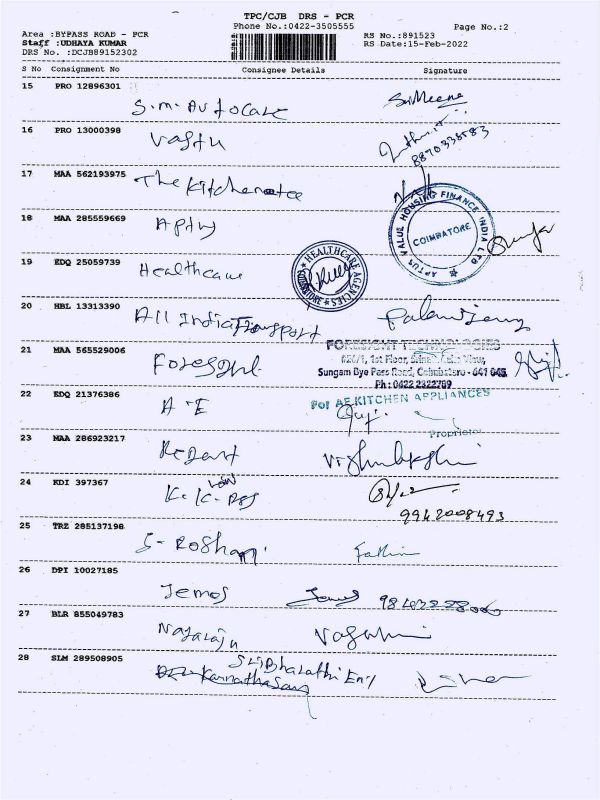 TPC/CJB DRS - PCR
Phone No.:0422-3505555
Page No.:2
Area :BYPASS ROAD - PCR
Staff :UDHAYA KUMAR
DRS No. :DCJB89152302
RS No.:891523
RS Date:15-Feb-2022
S No Consignment No Consignee Details Signature
15 PRO 12896301
S.M. Autocare
16 PRO 13000398
Vastu
8870338583
17 MAA 562193975
The Kitchenetee
18 MAA 285559669
Aptus
APTUS VALUE HOUSING FINANCE INDIA LTD
COIMBATORE
19 EDQ 25059739
Healthcare
HEALTHCARE AGENCIES
20 HBL 13313390
All India Transport
21 MAA 565529006
FORESIGHT TECHNOLOGIES
Sungam Bye Pass Road, Coimbatore - 641 045.
Ph : 0422 2322789
22 EDQ 21376386
A-E
For AE KITCHEN APPLIANCES
Proprietor
23 MAA 286923217
Regent
24 KDI 397367
25 TRZ 285137198
S-Roshan
26 DPI 10027185
Jemos
27 BLR 855049783
Nagaraju
28 SLM 289508905
Sribharathi Eng